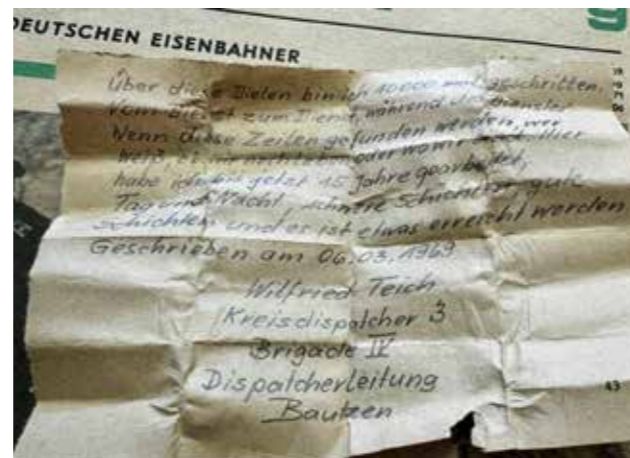 DEUTSCHEN EISENBAHNER
Über diese Dielen bin ich 10000 mal geschritten.
Vom Dienst zum Dienst, während des Dienstes
Wenn diese Zeilen gefunden werden, wer
weiß, ob wir noch leben oder wo wir sind. Hier
habe ich jetzt 15 Jahre gearbeitet,
Tag und Nacht, schwere Schichten gute
Schichten und es ist etwas erreicht worden
Geschrieben am 06.03.1969
Wilfried Teich
Kreisdispatcher 3
Brigade IV
Dispatcherleitung
Bautzen
43